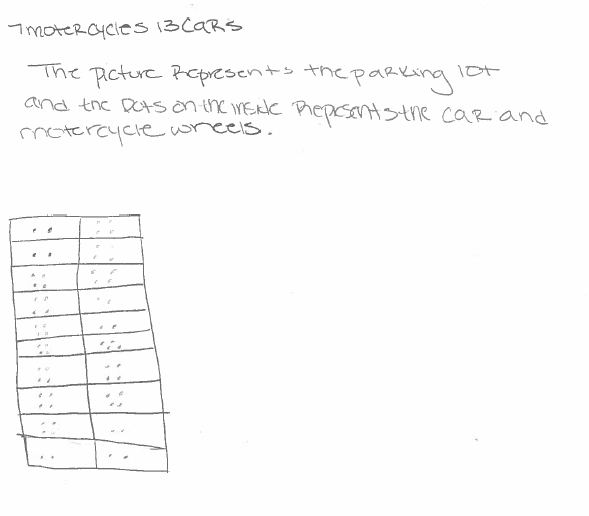 7 motercycles 13 cars
The picture Represents the parking lot
and the Dots on the inside Represents the car and
motercycle wheels.